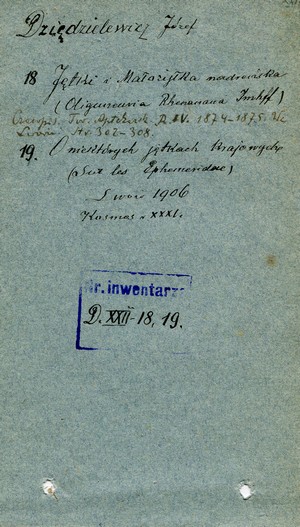 Dziędzielewicz Józef
18 Jętki i Małoziątka nadreńska
(Oligoneuria Rhenanana Imhff)
Czasopis. Tow. Aptekarsk. R. IV. 1874-1875.
Lwów. Str. 302-308.
19. O niektórych jętkach krajowych
(Sur les Ephemeridae)
Lwów 1906
Kosmos. XXXI.
Nr. inwentarza
D. XXII-18, 19.